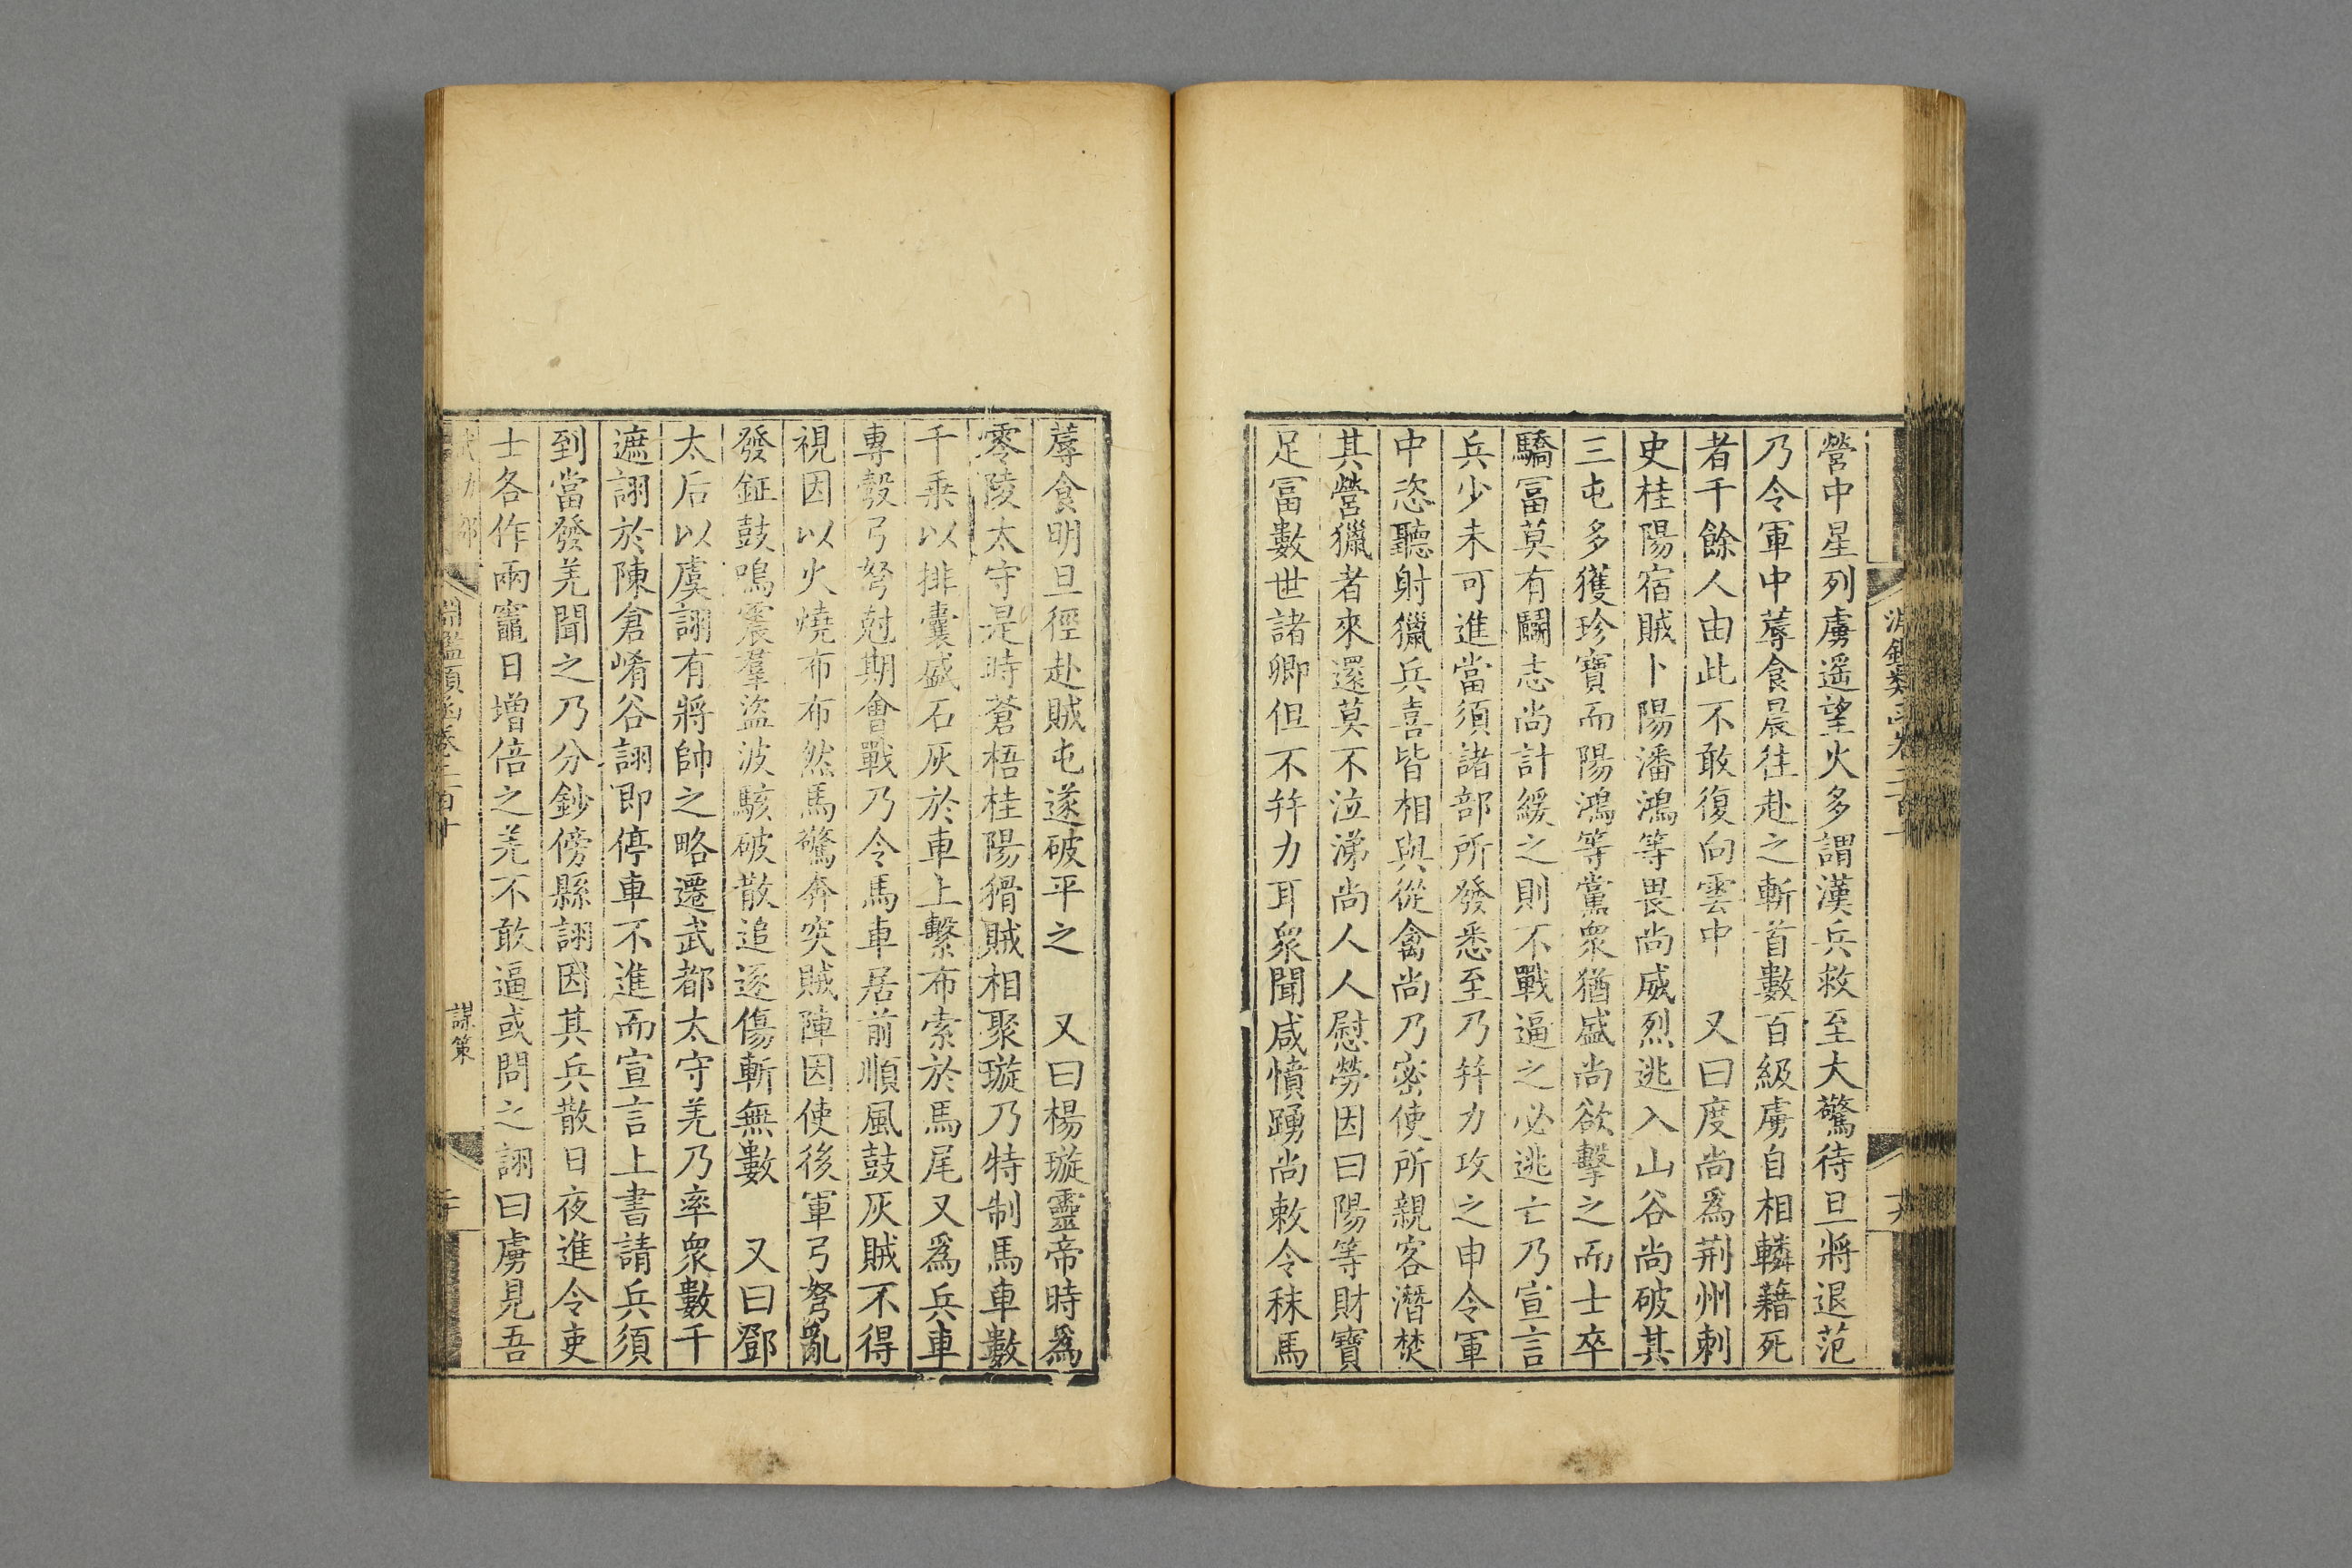 營中星列虜遥望火多謂漢兵救至大驚待旦將退范
乃令軍中蓐食晨往赴之斬首數百級虜自相轔藉死
者千餘人由此不敢復向雲中　又曰度尚爲荆州刺
史桂陽宿賊卜陽潘鴻等畏尚威烈逃入山谷尚破其
三屯多獲珍寶而陽鴻等黨衆猶盛尚欲擊之而士卒
驕冨莫有鬭志尚計緩之則不戰逼之必逃亡乃宣言
兵少未可進當須諸部所發悉至乃幷力攻之申令軍
中恣聽射獵兵喜皆相與從禽尚乃密使所親客潛焚
其營獵者來還莫不泣涕尚人人慰勞因曰陽等財寶
足冨數世諸卿但不幷力耳衆聞咸憤踴尚敕令秣馬
蓐食明旦徑赴賊屯遂破平之　又曰楊璇靈帝時爲
零陵太守是時蒼梧桂陽猾賊相聚璇乃特制馬車數
千乗以排囊盛石灰於車上繫布索於馬尾又爲兵車
專彀弓弩尅期會戰乃令馬車居前順風鼓灰賊不得
視因以火燒布布然馬驚奔突賊陣因使後軍弓弩亂
發鉦鼓鳴震羣盜波駭破散追逐傷斬無數　又曰鄧
太后以虞詡有將帥之略遷武都太守羌乃率衆數千
遮詡於陳倉崤谷詡即停車不進而宣言上書請兵須
到當發羌聞之乃分鈔傍縣詡因其兵散日夜進令吏
士各作兩竈日增倍之羌不敢逼或問之詡曰虜見吾
淵鑑類函卷二百十
謀策